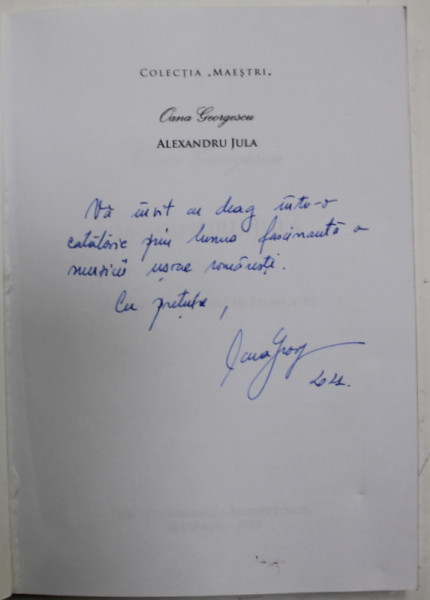 COLECȚIA „MAEȘTRI„
Oana Georgescu
ALEXANDRU JULA
Vă invit cu drag într-o
călătorie prin lumea fascinantă a
muzicii ușoare românești.
Cu prețuire,